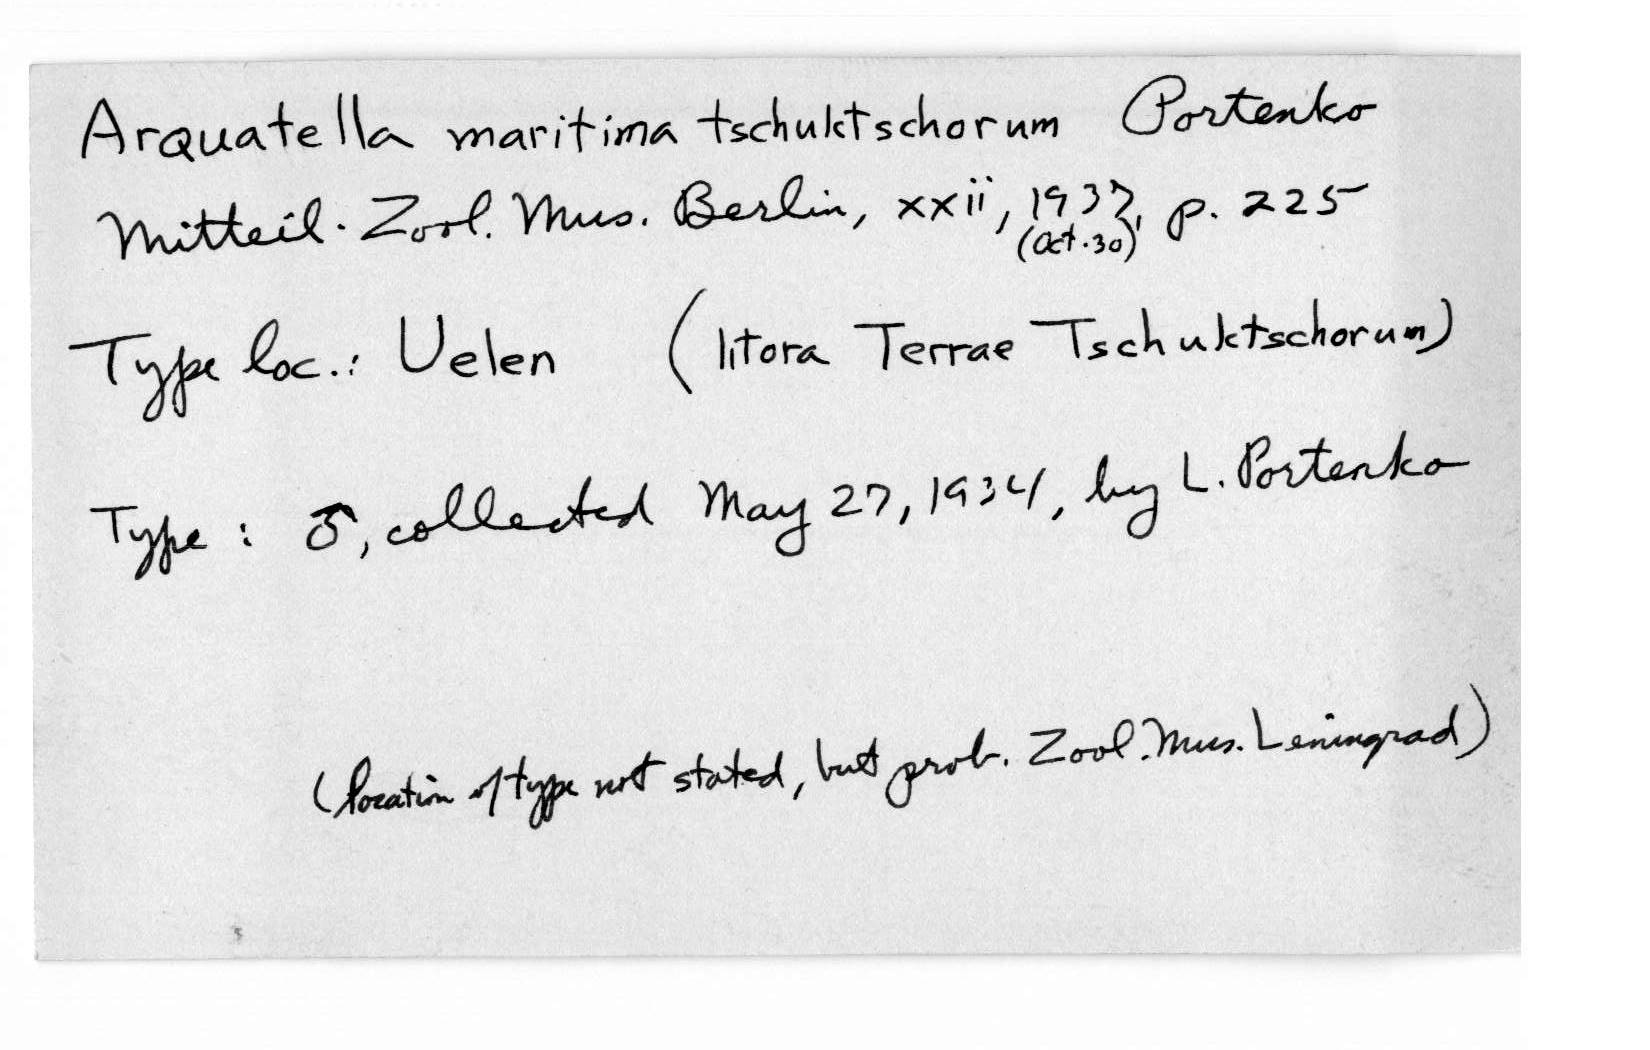 Arquatella maritima tschuktschorum Portenko
Mitteil. Zool. Mus. Berlin, xxii, 1937, p. 225
(Oct. 30)
Type loc.: Uelen (litora Terrae Tschuktschorum)
Type: ♂, collected May 27, 1934, by L. Portenko
(location of type not stated, but prob. Zool. Mus. Leningrad)